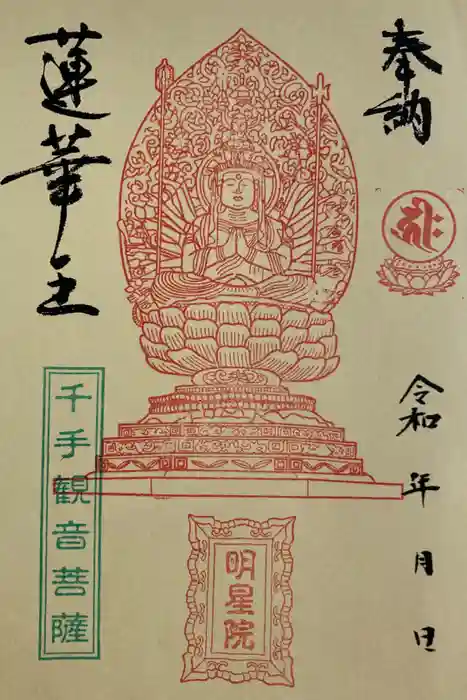 奉納
令和 年 月 日
蓮華王
千手観音菩薩
明星院